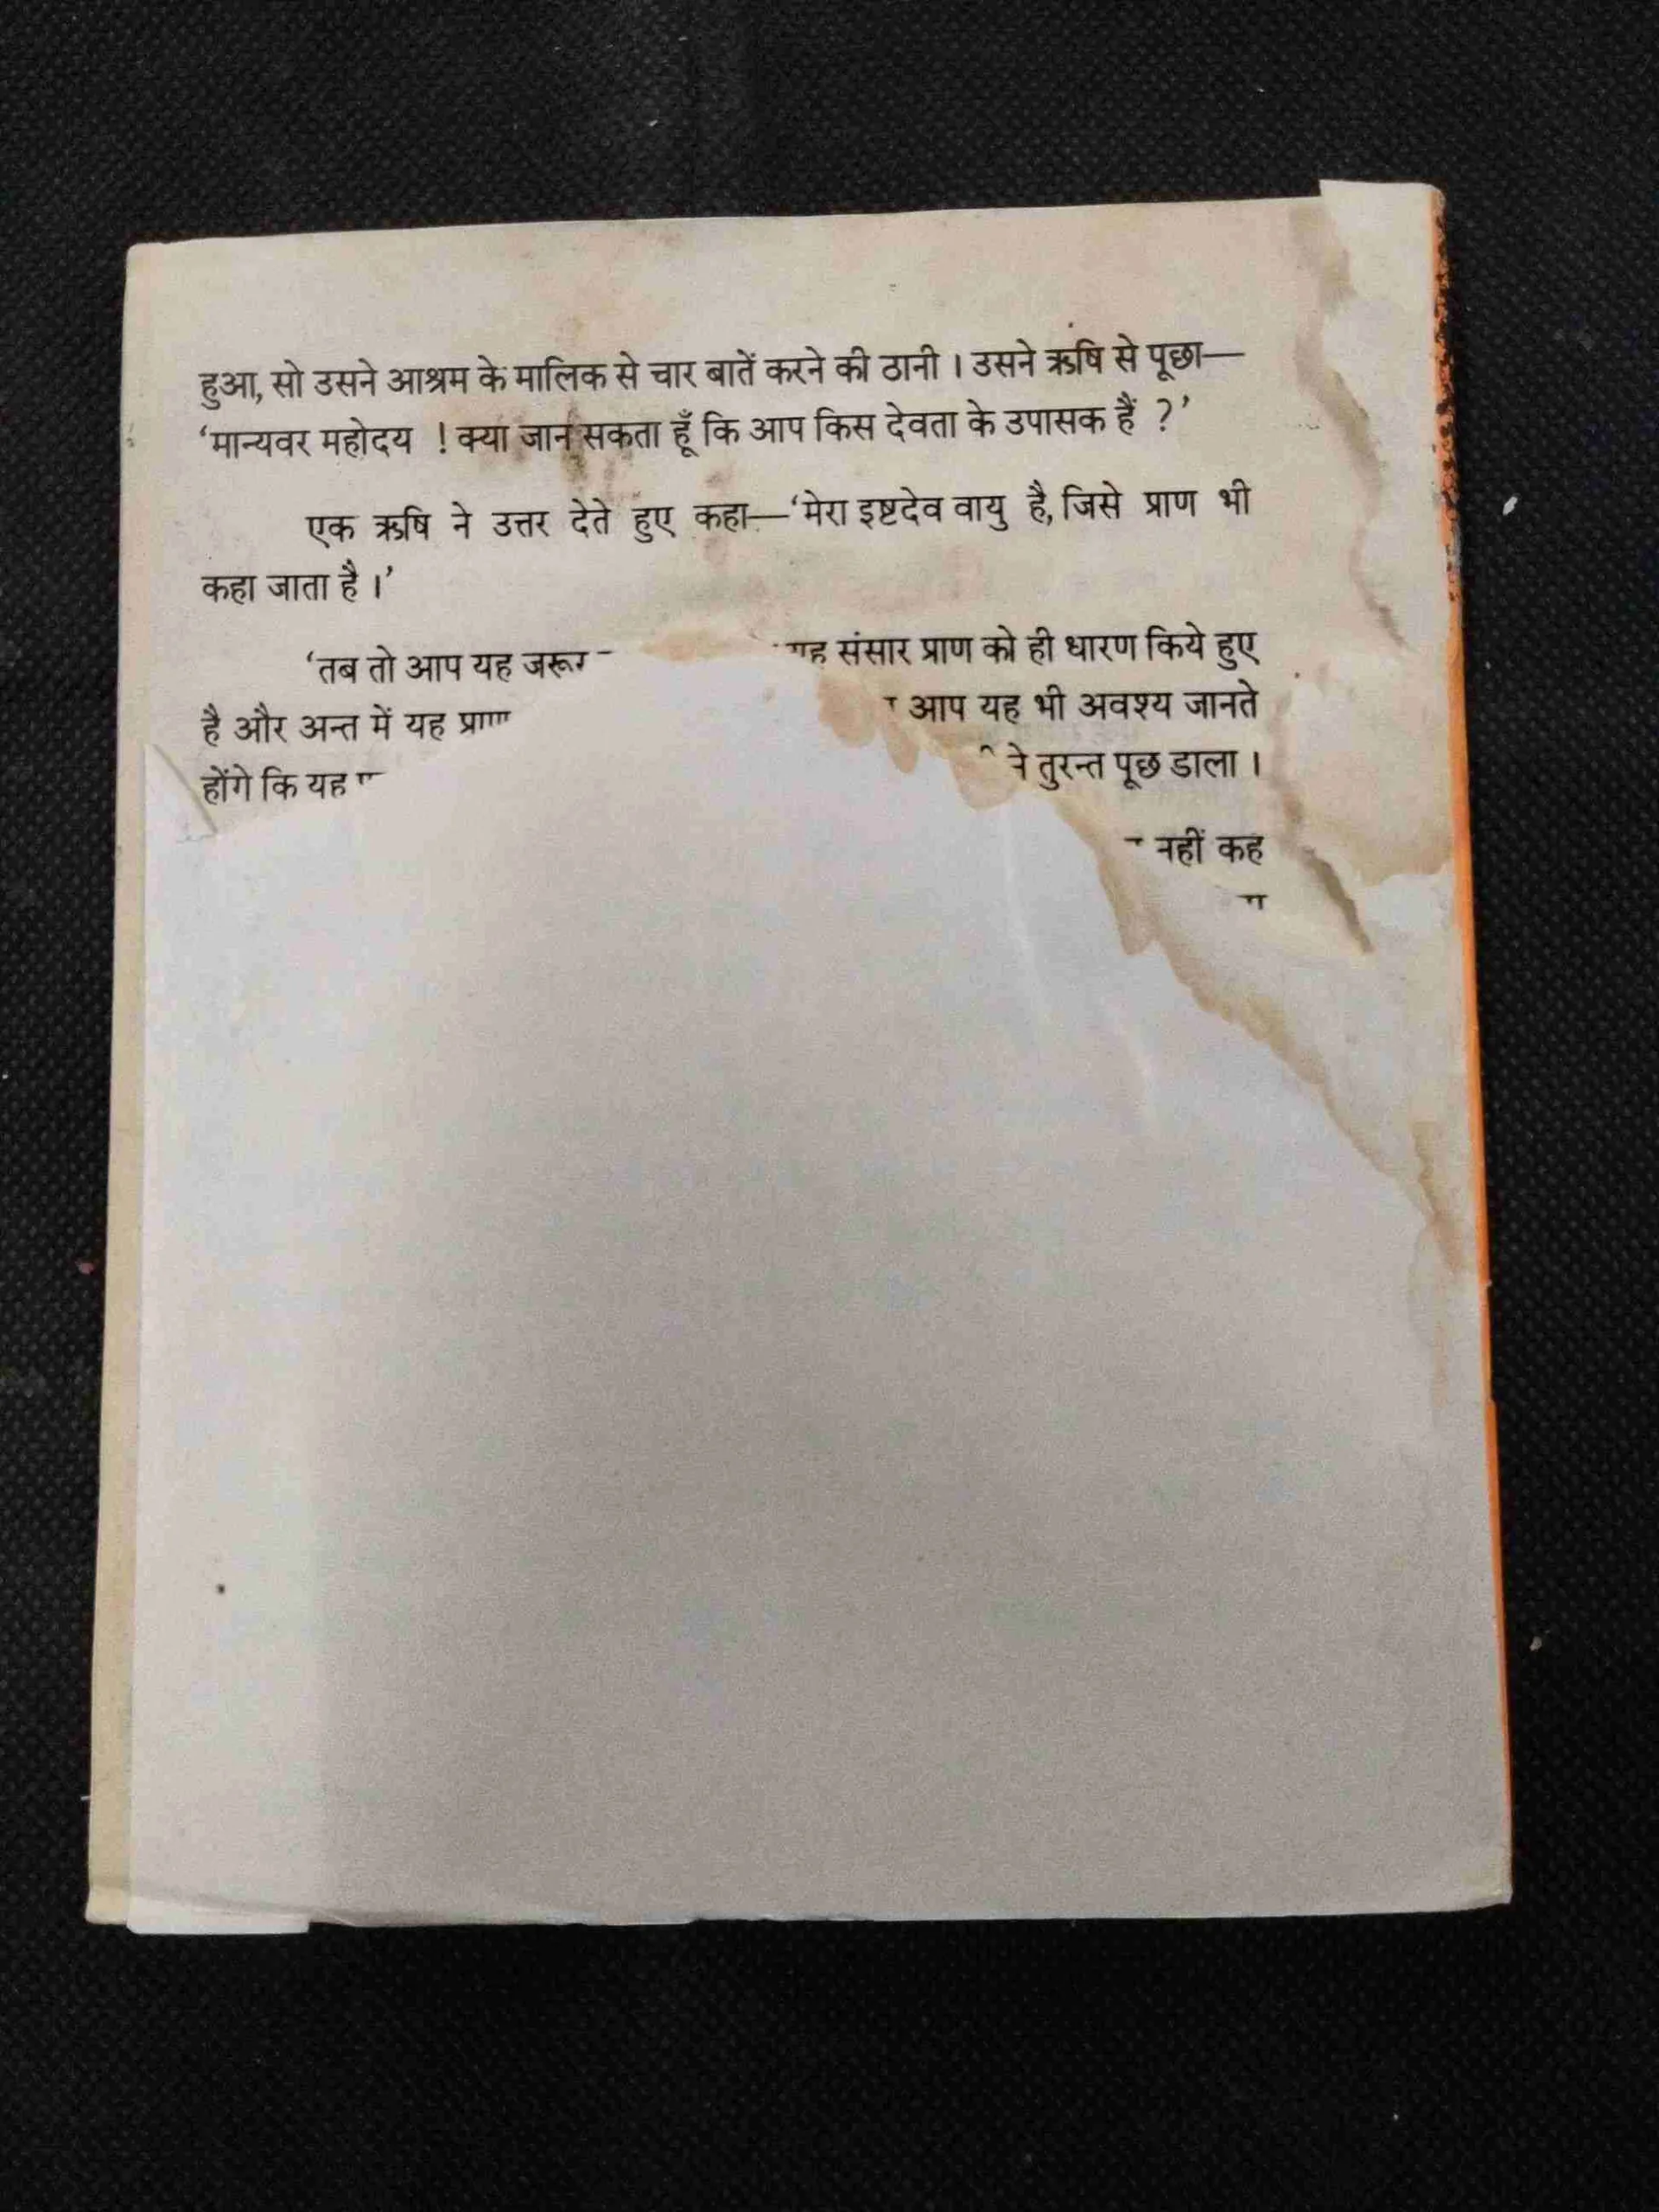 हुआ, सो उसने आश्रम के मालिक से चार बातें करने की ठानी । उसने ऋषि से पूछा—
‘मान्यवर महोदय ! क्या जान सकता हूँ कि आप किस देवता के उपासक हैं ?’
एक ऋषि ने उत्तर देते हुए कहा—‘मेरा इष्टदेव वायु है, जिसे प्राण भी
कहा जाता है ।’
‘तब तो आप यह जरूर संसार प्राण को ही धारण किये हुए
है और अन्त में यह आप यह भी अवश्य जानते
होंगे कि यह ने तुरन्त पूछ डाला ।
नहीं कह